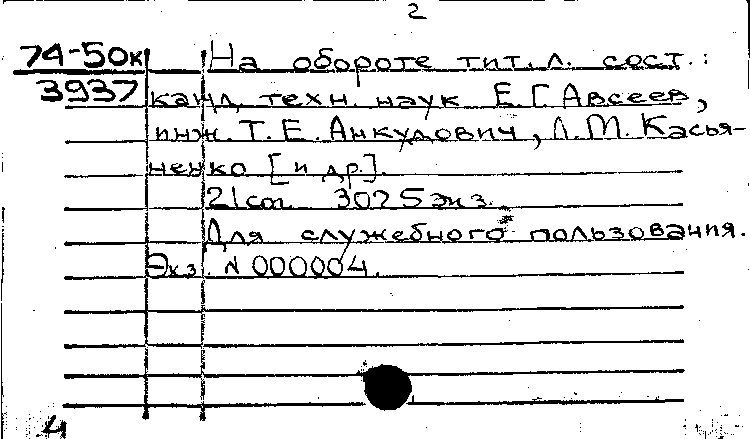 2
74-50к На обороте тит. л. сост.:
3937 канд. техн. наук Е.Г. Авсеев,
инж. Т.Е. Анкудович, Л.М. Касья-
ненко [и др.].
21 см. 3025 экз.
Для служебного пользования.
Экз. N 000004.
4